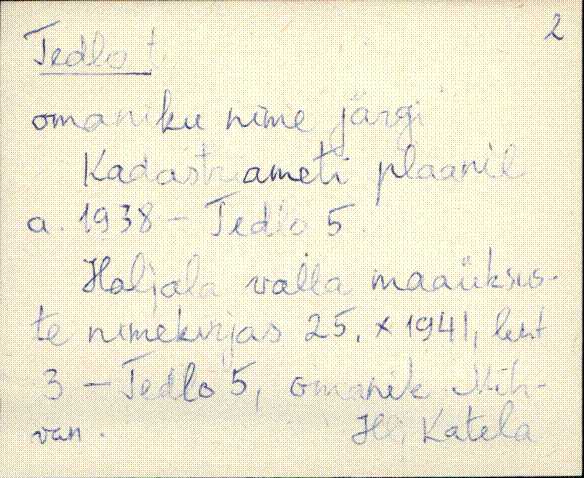 2
Tedlo t.
omaniku nime järgi
Kadastriameti plaanil
a. 1938 – Tedlo 5.
Haljala valla maaüksus-
te nimekirjas 25. X 1941, leht
3 – Tedlo 5, omanik Mih-
van. Katela